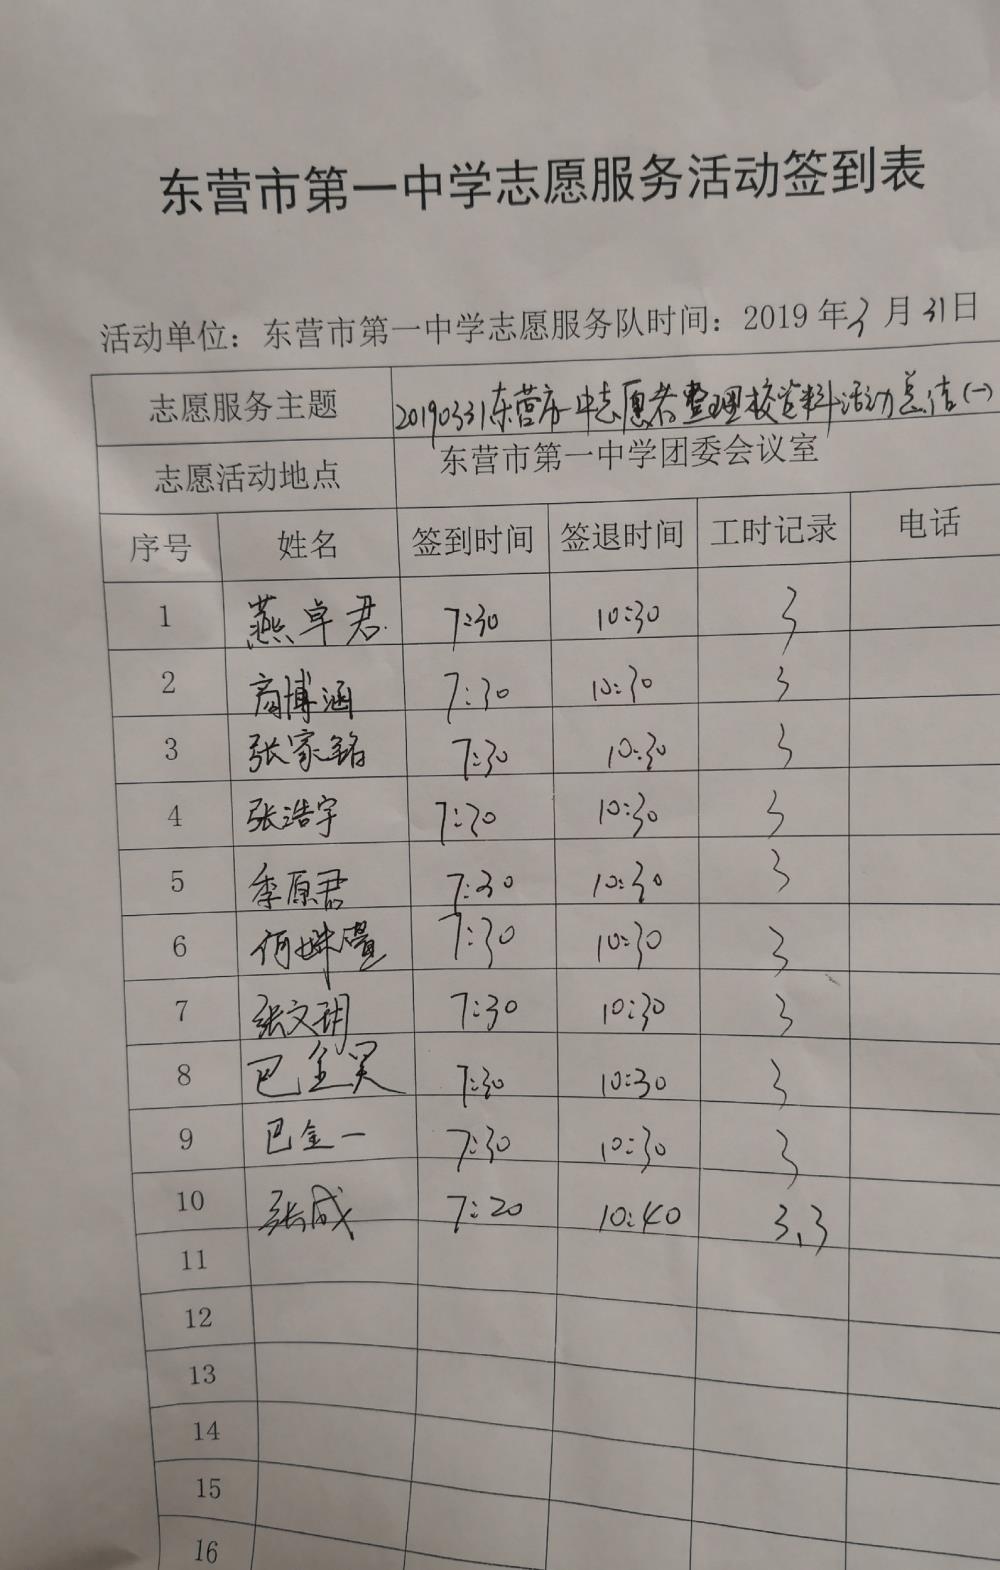 东营市第一中学志愿服务活动签到表
活动单位：东营市第一中学志愿服务队时间：2019年3月31日
志愿服务主题 20190331东营市一中志愿者整理校资料活动总结(一)
志愿活动地点 东营市第一中学团委会议室
序号 姓名 签到时间 签退时间 工时记录 电话
1 燕卓君 7:30 10:30 3
2 商博涵 7:30 10:30 3
3 张家铭 7:30 10:30 3
4 张浩宇 7:30 10:30 3
5 季原君 7:30 10:30 3
6 何姝 7:30 10:30 3
7 张文玥 7:30 10:30 3
8 巴金昊 7:30 10:30 3
9 巴金一 7:30 10:30 3
10 张成 7:20 10:40 3.3
11
12
13
14
15
16